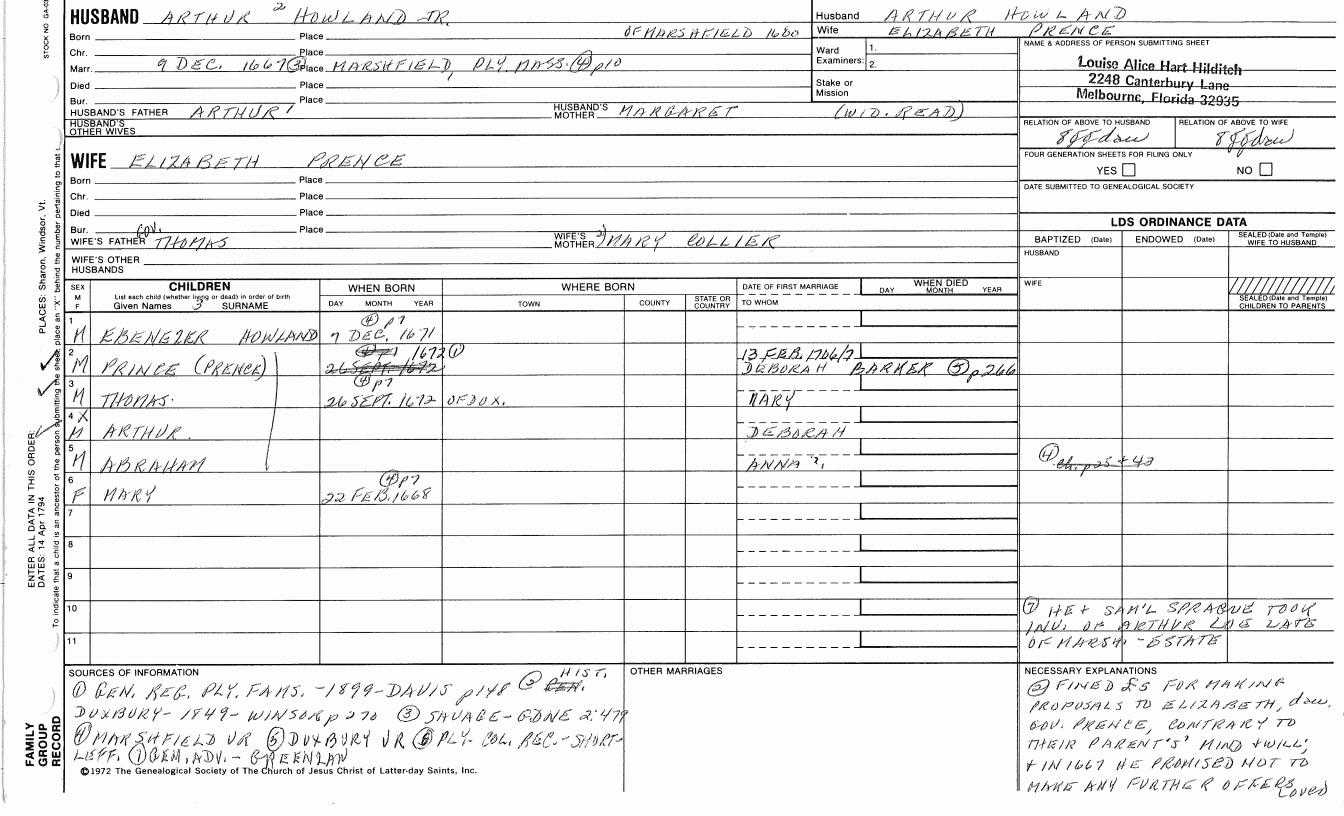 STOCK NO GA-03
HUSBAND ARTHUR 2 HOWLAND JR.
Born Place OF MARSHFIELD 1680
Chr. Place
Marr. 9 DEC. 1667 ③ Place MARSHFIELD, PLY. MASS. ④ p10
Died Place
Bur. Place
HUSBAND'S FATHER ARTHUR 1 HUSBAND'S MOTHER MARGARET (WID. READ)
HUSBAND'S OTHER WIVES
Husband ARTHUR HOWLAND
Wife ELIZABETH PRENCE
Ward
Examiners: 1.
2.
Stake or
Mission
NAME & ADDRESS OF PERSON SUBMITTING SHEET
Louise Alice Hart Hilditch
2248 Canterbury Lane
Melbourne, Florida 32935
RELATION OF ABOVE TO HUSBAND RELATION OF ABOVE TO WIFE
8 gg dau 8 gg dau
FOUR GENERATION SHEETS FOR FILING ONLY
YES NO
DATE SUBMITTED TO GENEALOGICAL SOCIETY
WIFE ELIZABETH PRENCE
Born Place
Chr. Place
Died Place
Bur. Place
WIFE'S FATHER GOV. THOMAS WIFE'S MOTHER 2) MARY COLLIER
WIFE'S OTHER
HUSBANDS
LDS ORDINANCE DATA
BAPTIZED (Date) ENDOWED (Date) SEALED (Date and Temple) WIFE TO HUSBAND
HUSBAND
WIFE
SEALED (Date and Temple) CHILDREN TO PARENTS
SEX M F
CHILDREN
List each child (whether living or dead) in order of birth
Given Names 3 SURNAME
WHEN BORN
DAY MONTH YEAR
WHERE BORN
TOWN COUNTY STATE OR COUNTRY
DATE OF FIRST MARRIAGE
TO WHOM
WHEN DIED
DAY MONTH YEAR
1 ④ p7
M EBENEZER HOWLAND 9 DEC. 1671
2 ④ p7 1672 ① 13 FEB. 1706/7
M PRINCE (PRENCE) 26 SEPT. 1672 DEBORAH BARKER ⑤ p266
3 ④ p7
M THOMAS. 26 SEPT. 1672 OF DUX. MARY
4 X
M ARTHUR. DEBORAH
5
M ABRAHAM ANNA ?, ④ ch. p25 + 43
6 ④ p7
F MARY 22 FEB. 1668
7
8
9
10
11
⑦ HE + SAM'L SPRAGUE TOOK
INV. OF ARTHUR LOE LATE
OF MARSH. - ESTATE
SOURCES OF INFORMATION
① GEN. REG. PLY. FAMS. - 1899 - DAVIS p148 ② HIST. GEN.
DUXBURY - 1849 - WINSOR p270 ③ SAVAGE - GDNE 2:479
④ MARSHFIELD VR ⑤ DUXBURY VR ⑥ PLY. COL. REC. - SHORT-
LEFF. ⑦ GEN. ADV. - GREENLAW
OTHER MARRIAGES
NECESSARY EXPLANATIONS
② FINED £5 FOR MAKING
PROPOSALS TO ELIZABETH, dau.
GOV. PRENCE, CONTRARY TO
THEIR PARENT'S' MIND + WILL;
+ IN 1667 HE PROMISED NOT TO
MAKE ANY FURTHER OFFERS
©1972 The Genealogical Society of The Church of Jesus Christ of Latter-day Saints, Inc.
ENTER ALL DATA IN THIS ORDER:
DATES: 14 Apr 1794
PLACES: Sharon, Windsor, Vt.
To indicate that a child is an ancestor of the person submitting the sheet, place an "X" behind the number pertaining to that
FAMILY
GROUP
RECORD